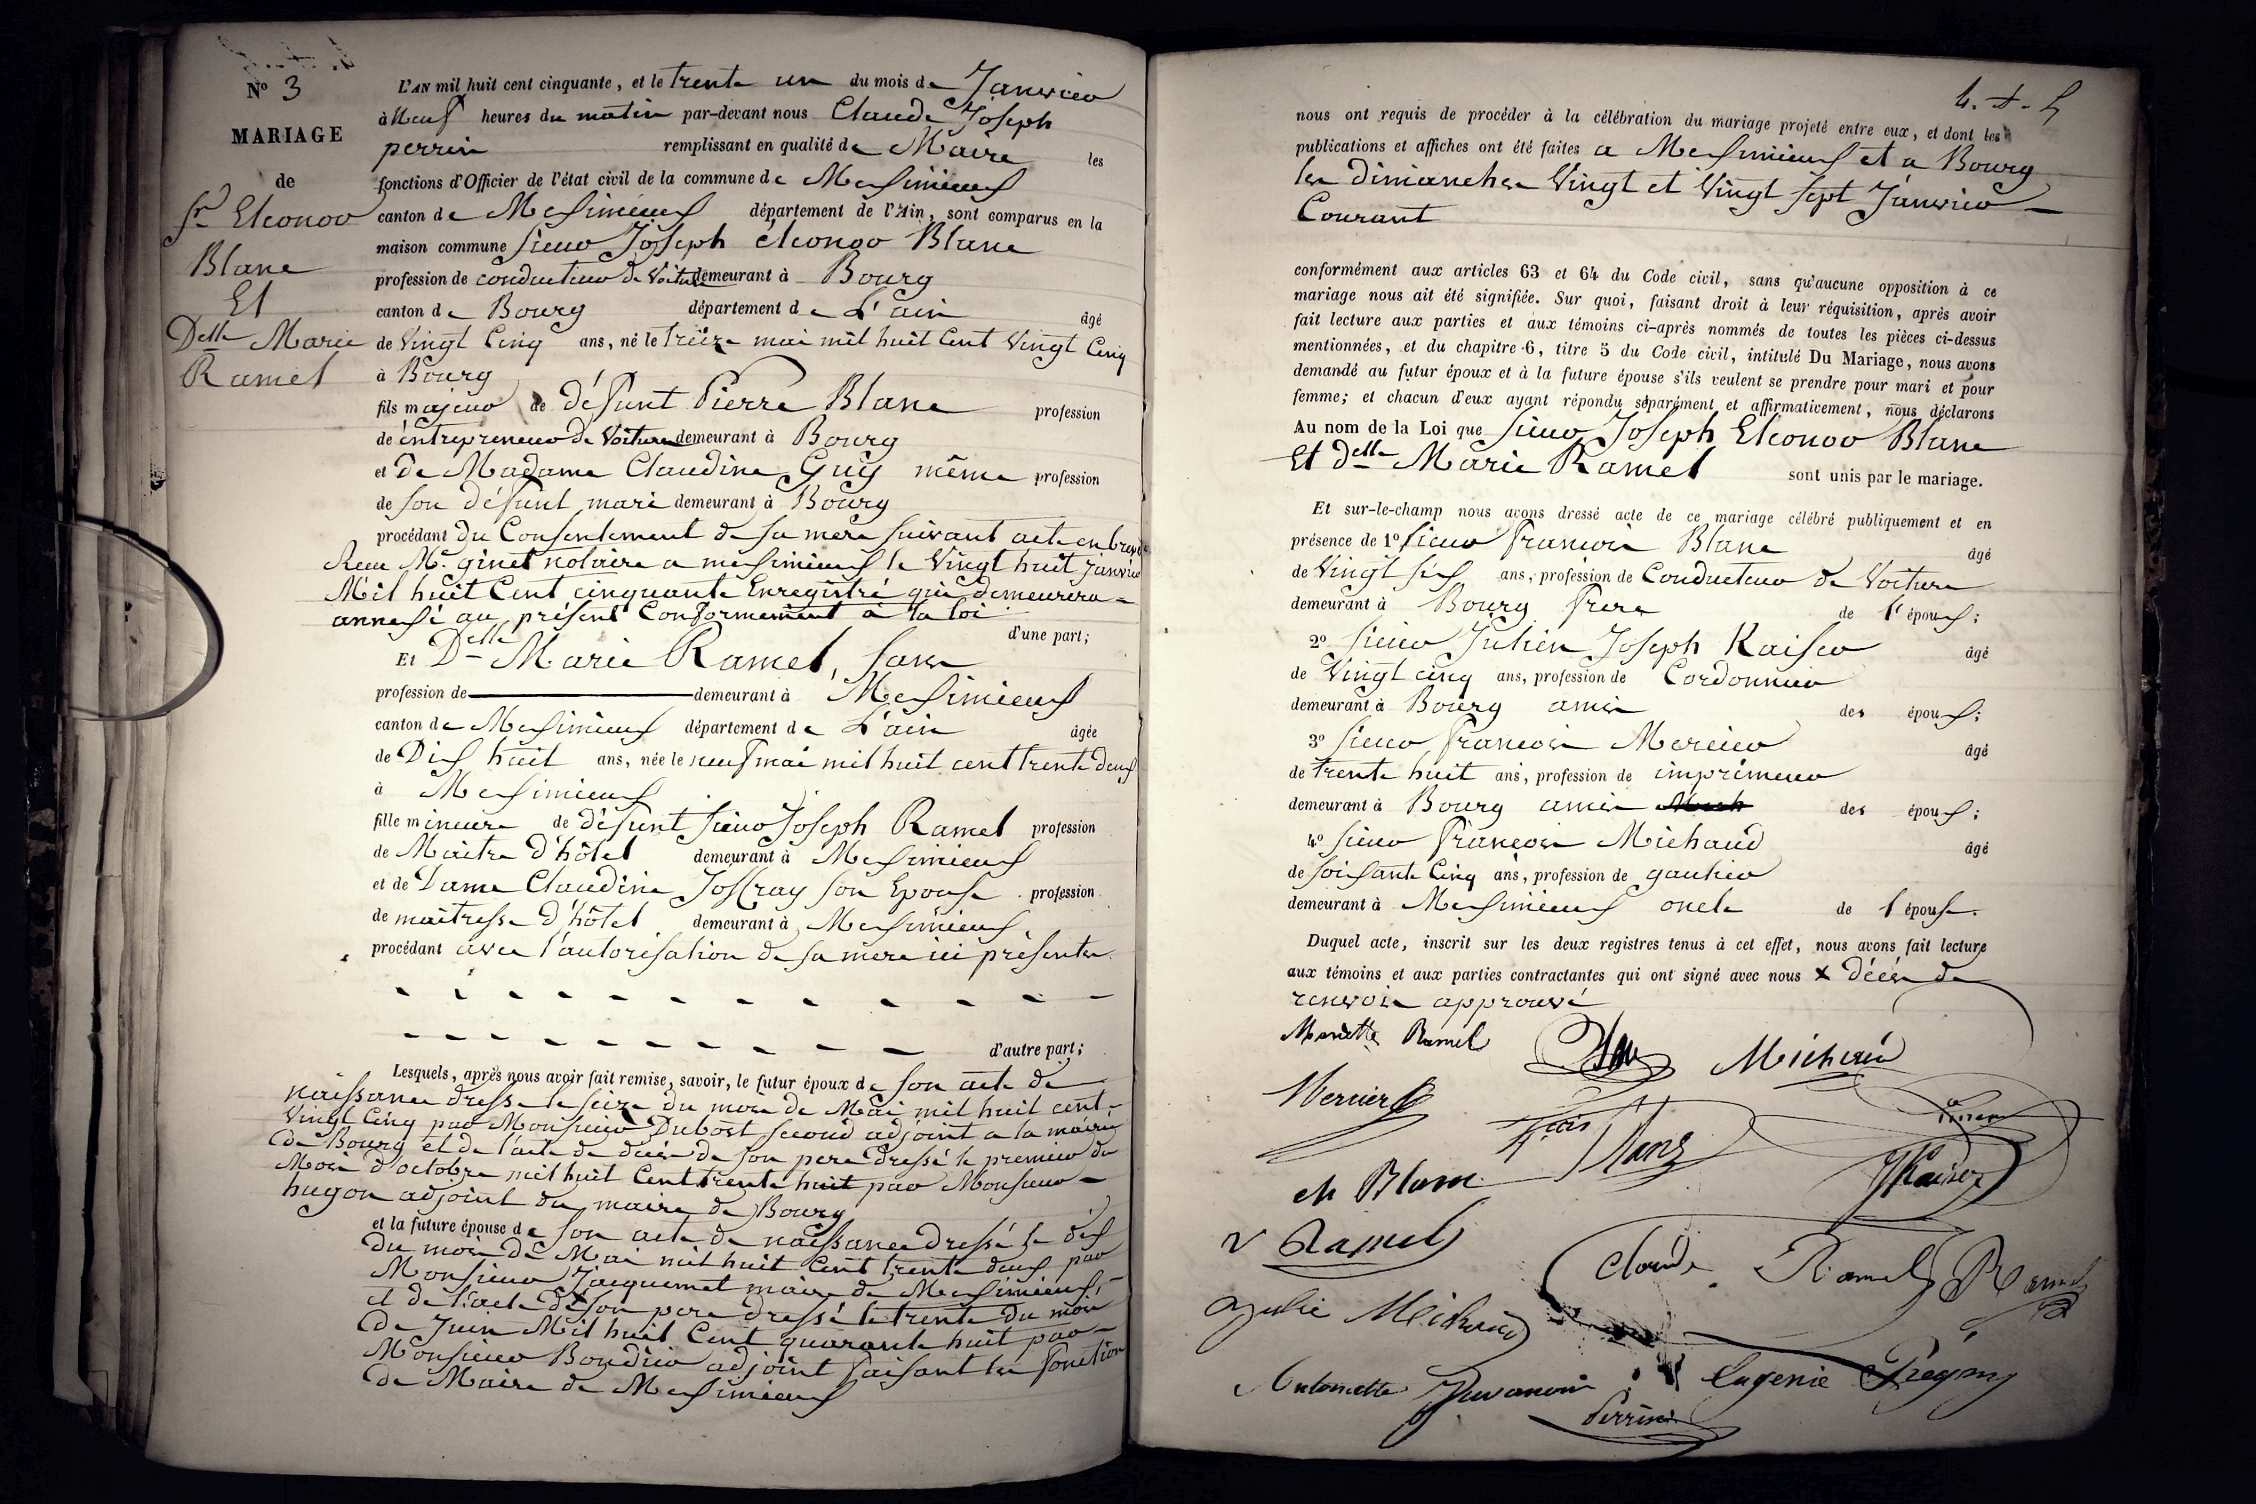 N° 3
MARIAGE
de
Sr Eleonor
Blanc
Et
Delle Marie
Ramel
L'AN mil huit cent cinquante, et le trente un du mois de Janvier
à Neuf heures du matin par-devant nous Claude Joseph
perrin remplissant en qualité de Maire les
fonctions d'Officier de l'état civil de la commune de Meximieux
canton de Meximieux département de l'Ain, sont comparus en la
maison commune sieur Joseph éleonor Blanc
profession de conducteur de Voiture demeurant à Bourg
canton de Bourg département de L'ain âgé
de Vingt Cinq ans, né le treize mai mil huit Cent Vingt Cinq
à Bourg
fils majeur de défunt Pierre Blanc profession
de entrepreneur de Voiture demeurant à Bourg
et de Madame Claudine Guy même profession
de son défunt mari demeurant à Bourg
procédant du Consentement de sa mere suivant acte en brevet
Recu Me ginet notaire a meximieux le Vingt huit janvier
Mil huit Cent cinquante Enregistré qui demeurera
annexé au présent Conformement a la loi
d'une part;
Et Delle Marie Ramel, sans
profession de demeurant à Meximieux
canton de Meximieux département de L'ain âgée
de Dix huit ans, née le neuf mai mil huit cent trente deux
à Meximieux
fille mineure de défunt sieur Joseph Ramel profession
de Maitre d'hôtel demeurant à Meximieux
et de Dame Claudine Josseray son Epouse profession
de maitresse d'hôtel demeurant à Meximieux
procédant avec l'autorisation de sa mere ici présente
d'autre part;
Lesquels, après nous avoir fait remise, savoir, le futur époux de son acte de
naissance dressé le seize du mois de Mai mil huit cent
Vingt Cinq par Monsieur Dubost second adjoint a la mairie
de Bourg et de l'acte de décès de son pere dressé le premier du
Mois d'octobre mil huit Cent trente huit par Monsieur
hugon adjoint du maire de Bourg
et la future épouse de son acte de naissance dressé le dix
du mois de Mai mil huit Cent trente deux par
Monsieur Jacquemet maire de Meximieux
et de l'acte de x son pere dressé le trente du mois
de Juin Mil huit Cent quarante huit par
Monsieur Bordier adjoint faisant les fonction
de Maire de Meximieux
nous ont requis de procéder à la célébration du mariage projeté entre eux, et dont les
publications et affiches ont été faites a Meximieux et a Bourg
les dimanches Vingt et Vingt sept Janvier
Courant
conformément aux articles 63 et 64 du Code civil, sans qu'aucune opposition à ce
mariage nous ait été signifiée. Sur quoi, faisant droit à leur réquisition, après avoir
fait lecture aux parties et aux témoins ci-après nommés de toutes les pièces ci-dessus
mentionnées, et du chapitre 6, titre 5 du Code civil, intitulé Du Mariage, nous avons
demandé au futur époux et à la future épouse s'ils veulent se prendre pour mari et pour
femme; et chacun d'eux ayant répondu séparément et affirmativement, nous déclarons
Au nom de la Loi que sieur Joseph Eleonor Blanc
Et delle Marie Ramel sont unis par le mariage.
Et sur-le-champ nous avons dressé acte de ce mariage célébré publiquement et en
présence de 1° sieur Francois Blanc âgé
de Vingt six ans, profession de Conducteur de Voiture
demeurant à Bourg frere de l' époux;
2° sieur Julien Joseph Kaiser âgé
de Vingt cinq ans, profession de Cordonnier
demeurant à Bourg amis des époux;
3° sieur francois Mercier âgé
de trente huit ans, profession de imprimeur
demeurant à Bourg amis des époux;
4° sieur françois Michaud âgé
de soixante Cinq ans, profession de gautier
demeurant à Meximieux oncle de l épouse.
Duquel acte, inscrit sur les deux registres tenus à cet effet, nous avons fait lecture
aux témoins et aux parties contractantes qui ont signé avec nous x décès de
renvois approuvé
Mariette Ramel
Michaud
Mercier
fçois Blanc
ch Blanc
JKaiser
v Ramel
Claude Ramel
Ramel
Julie Michaud
Antoinette Juvanon
Eugenie Frégny
Perrin